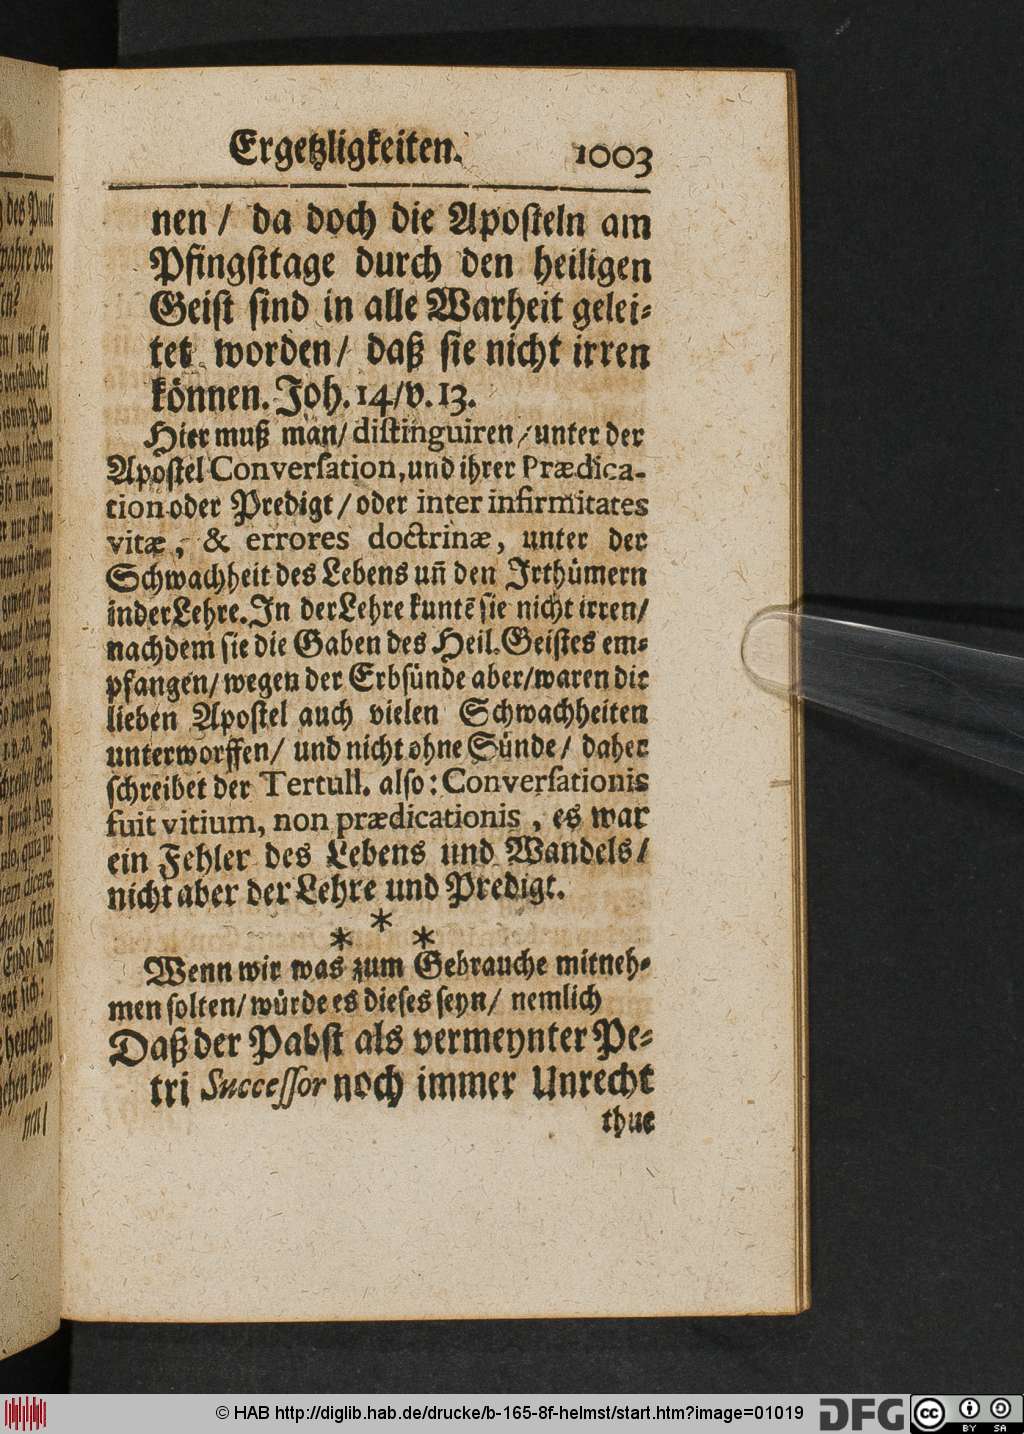 Ergetzligkeiten. 1003
nen / da doch die Aposteln am
Pfingsttage durch den heiligen
Geist sind in alle Warheit gelei-
tet worden / daß sie nicht irren
können. Joh. 14/v. 13.
Hier muß man / distinguiren / unter der
Apostel Conversation, und ihrer Prædica-
tion oder Predigt / oder inter infirmitates
vitæ, & errores doctrinæ, unter der
Schwachheit des Lebens uñ den Irthümern
in der Lehre. In der Lehre kuntē sie nicht irren /
nachdem sie die Gaben des Heil. Geistes em-
pfangen / wegen der Erbsünde aber / waren die
lieben Apostel auch vielen Schwachheiten
unterworffen / und nicht ohne Sünde / daher
schreibet der Tertull. also: Conversationis
fuit vitium, non prædicationis, es war
ein Fehler des Lebens und Wandels /
nicht aber der Lehre und Predigt.
* * *
Wenn wir was zum Gebrauche mitneh-
men solten / würde es dieses seyn / nemlich
Daß der Pabst als vermeynter Pe-
tri Successor noch immer Unrecht
thue
© HAB http://diglib.hab.de/drucke/b-165-8f-helmst/start.htm?image=01019
DFG
cc BY SA